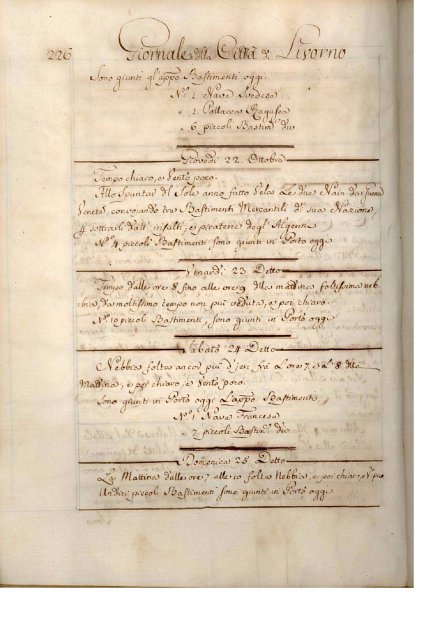 226 Giornale della Città di Livorno
Sono giunti gl'appo. Bastimenti oggi.
N.º 1. Nave Svedese
" 1. Pollacca Ragusea
" 6. piccoli Bastim.ti div.
Giovedì 22. Ottobre
Tempo chiaro, e Vento poco.
Allo Spuntar del Sole anno fatto Vela Le due Navi da Guerra
Venete, convojando tre Bastimenti Mercantili di sua Nazione
p sottrarli dall' insulti, e piraterie degl' Algerini
N.º 4 piccoli Bastimenti sono giunti in Porto oggi
Venardì 23. Detto
Tempo dalle ore 8 fino alle ore 9 della mattina foltissima neb-
bia, da moltissimo tempo non più veduta, e poi chiaro.
N.º 10 piccoli Bastimenti, sono giunti in Porto oggi
Sabato 24 Detto
Nebbia folta ancor più d'jeri frà L'ore 7, e L' 8 della
Mattina, e poi chiaro, e Vento poco.
Sono giunti in Porto oggi L'appo. Bastimenti
N.º 1. Nave Francese
" 2. piccoli Bastim.ti div.
Domenica 25. Detto
La Mattina dalle ore 7 alle 10 folta Nebbia, e poi chiaro, e V.to poco
Undici piccoli Bastimenti sono giunti in Porto oggi